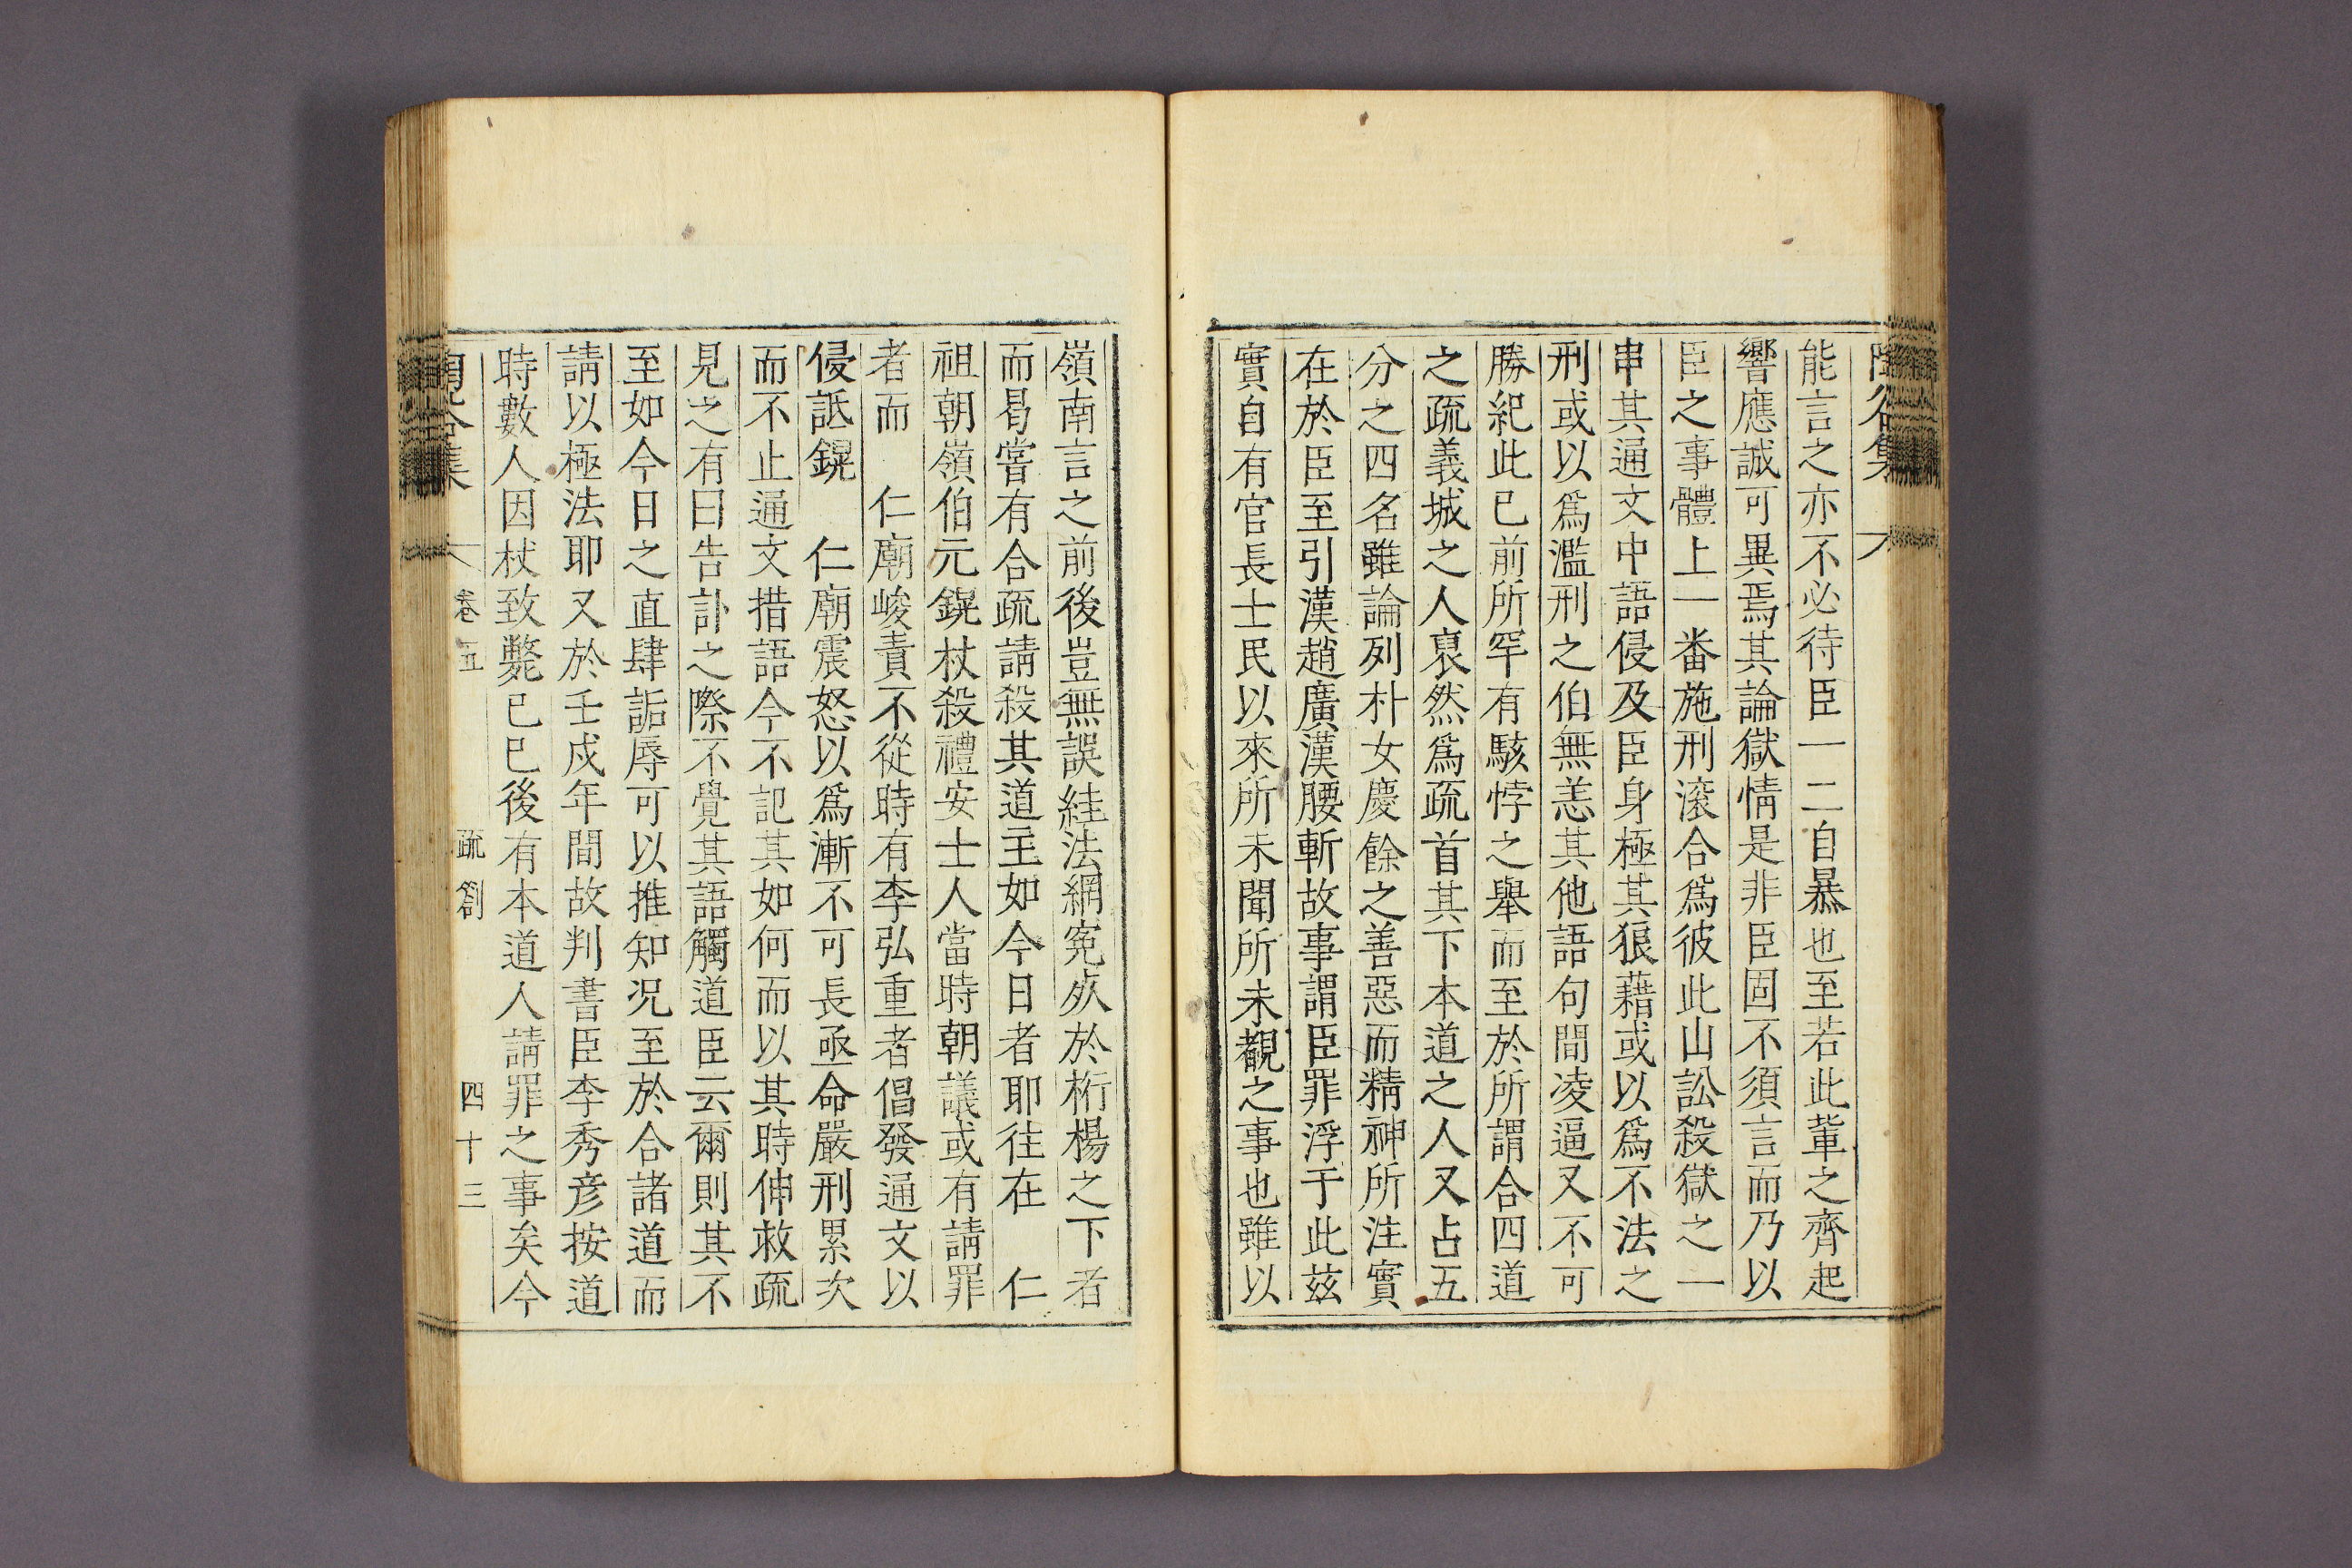 能言之亦不必待臣一二自暴也至若此輩之齊起
響應誠可異焉其論獄情是非臣固不須言而乃以
臣之事體上一番施刑滾合爲彼此山訟殺獄之一
申其通文中語侵及臣身極其狼藉或以爲不法之
刑或以爲濫刑之伯無恙其他語句間凌逼又不可
勝紀此已前所罕有駭悖之舉而至於所謂合四道
之疏義城之人裒然爲疏首其下本道之人又占五
分之四名雖論列朴女慶餘之善惡而精神所注實
在於臣至引漢趙廣漢腰斬故事謂臣罪浮于此玆
實自有官長士民以來所未聞所未覩之事也雖以
嶺南言之前後豈無誤絓法網寃死於桁楊之下者
而曷嘗有合疏請殺其道主如今日者耶往在　仁
祖朝嶺伯元鎤杖殺禮安士人當時朝議或有請罪
者而　仁廟峻責不從時有李弘重者倡發通文以
侵詆鎤　仁廟震怒以爲漸不可長亟命嚴刑累次
而不止通文措語今不記其如何而以其時伸救疏
見之有曰告訃之際不覺其語觸道臣云爾則其不
至如今日之直肆詬辱可以推知况至於合諸道而
請以極法耶又於壬戌年間故判書臣李秀彦按道
時數人因杖致斃已已後有本道人請罪之事矣今
卷五　疏劄　四十三